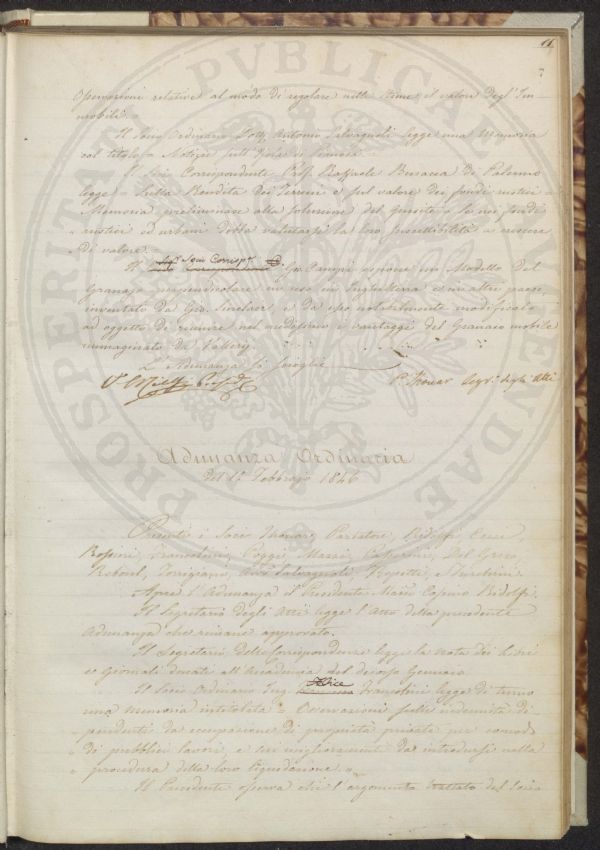 PROSPERITATI PVBLICAE AVGENDAE
7
relative al modo di regolare nelle stime il valore degl'Im
mobili.
Il Socio Ordinario Dott. Antonio Salvagnoli legge una Memoria
col titolo Notizie sull'Isola di Pianosa
Il Socio Corrispondente Prof. Raffaele Busacca di Palermo
legge Sulla Rendita dei Terreni e sul valore dei fondi rustici
Memoria preliminare alla soluzione del quesito = Se nei fondi
rustici ed urbani debba valutarsi la loro suscettibilità a crescere
di valore. =
Il Socio Corrisp. espone un Modello del
Granajo perpendicolare in uso in Inghilterra e in altri paesi,
inventato da Sinclair, e da esso notabilmente modificato
ad oggetto di riunire nel medesimo i vantaggi del Granaio mobile
immaginato da Vallery
L'Adunanza si scioglie
Segr. degli Atti
Adunanza Ordinaria
Del Febbrajo 1846
Presenti i Soci Thouar, Parlatore, Ridolfi,
Franceschini, Poggi, Del Greco,
Reboul, Torrigiani, Salvagnoli, Repetti, e
Apre l'Adunanza il Presidente March. Cosimo Ridolfi.
Il Segretario degli Atti legge l'Atto della precedente
Adunanza che rimane approvato.
Il Segretario delle Corrispondenze legge la nota dei Libri
e Giornali donati all'Accademia nel decorso Gennaio
Il Socio Ordinario Ing. Felice Francolini legge di turno
una memoria intitolata = Osservazioni sulle indennità di-
pendenti da occupazione di proprietà private per comodo
di pubblici lavori, e sui miglioramenti da introdursi nella
procedura della loro liquidazione. =
Il Presidente osserva che l'argomento trattato del Socio